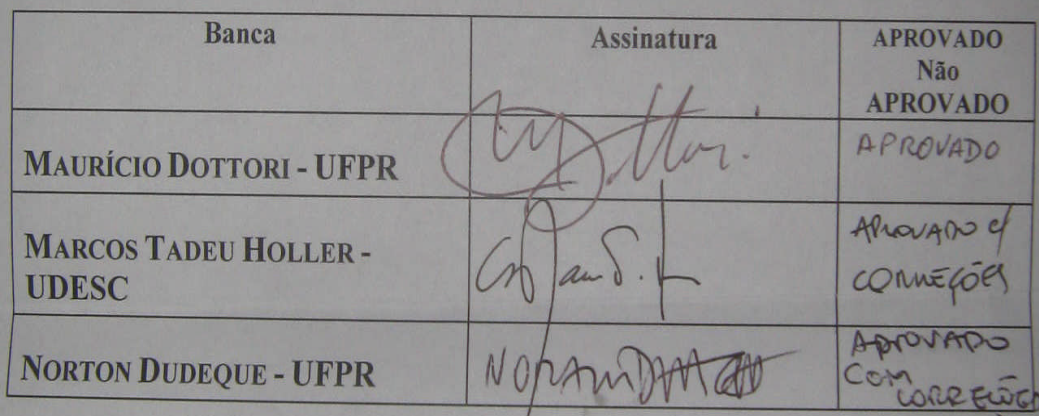 Banca Assinatura APROVADO
Não
APROVADO
MAURÍCIO DOTTORI - UFPR APROVADO
MARCOS TADEU HOLLER - APROVADO c/
UDESC CORREÇÕES
NORTON DUDEQUE - UFPR APROVADO
COM
CORREÇÕES